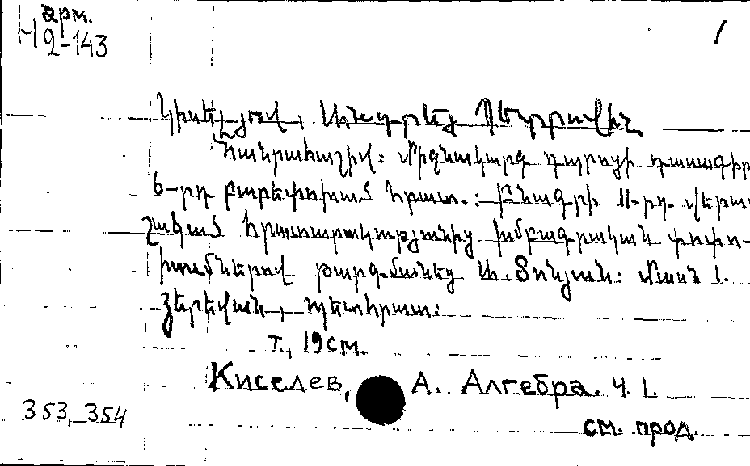 арм.
Н2-143
1
Կիսելյով, Անդրեյ Պետրովիչ
Հանրահաշիվ: Միջնակարգ դպրոցի դասագիրք
6-րդ բարեփոխած հրատ.: Բնագրի 11-րդ վերա-
շակած հրատարակությունից խմբագրական փոփո-
խումներով թարգմանեց Ա. Տոնյան: Մասն 1.
Յերեվան, պետհրատ.
т., 19 см.
Киселев, А. Алгебра. ч. I
353, 354
см. прод.